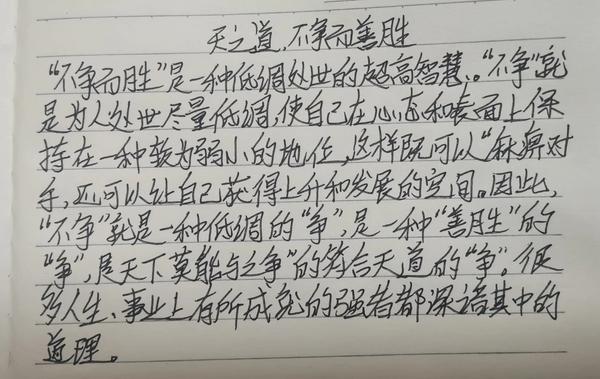 天之道，不争而善胜
“不争而胜”是一种低调处世的超高智慧。“不争”就
是为人处世尽量低调，使自己在心态和表面上保
持在一种较为弱小的地位，这样既可以“麻痹对
手，还可以让自己获得上升和发展的空间。因此，
“不争”就是一种低调的“争”，是一种“善胜”的
“争”，是天下莫能与之争”的符合天道的“争”。很
多人生、事业上有所成就的强者都深谙其中的
道理。